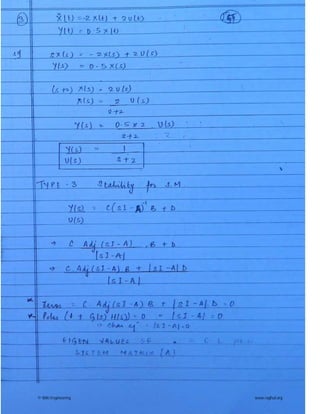 ③ Ẋ(t) = -2 x(t) + 2u(t)
y(t) = 0.5 x(t)
sx(s) = -2x(s) + 2U(s)
Y(s) = 0.5 X(s)
(s+2) X(s) = 2U(s)
X(s) = 2 U(s)
s+2
Y(s) = 0.5 x 2 U(s)
s+2
Y(s) = 1
U(s) s+2
TYPE - 3 Stability for S.M
Y(s) = C(sI - A)⁻¹ B + D
U(s)
→ C Adj (sI - A) . B + D
|sI - A|
→ C. Adj (sI - A) B + |sI - A| D
|sI - A|
* Zeros = C Adj (sI - A) B + |sI - A| D = 0
* Poles (1 + G(s) H(s)) = 0 = |sI - A| = 0
Char eqn = |sI - A| = 0
EIGEN VALUES OF = C L
SYSTEM MATRIX [A]
www.raghul.org